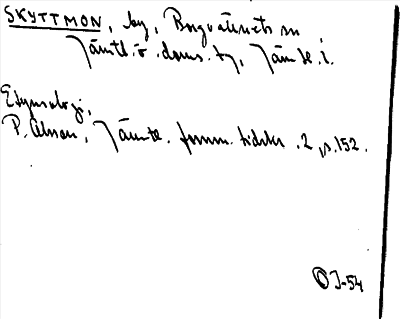 SKYTTMON, by, Borgvattnets sn
Jämtl. ö. doms. tg, Jämtl. l.
Etymologi,
P. Olsson, Jämtl. fornm. tidskr. 2, s. 152.
OJ-54